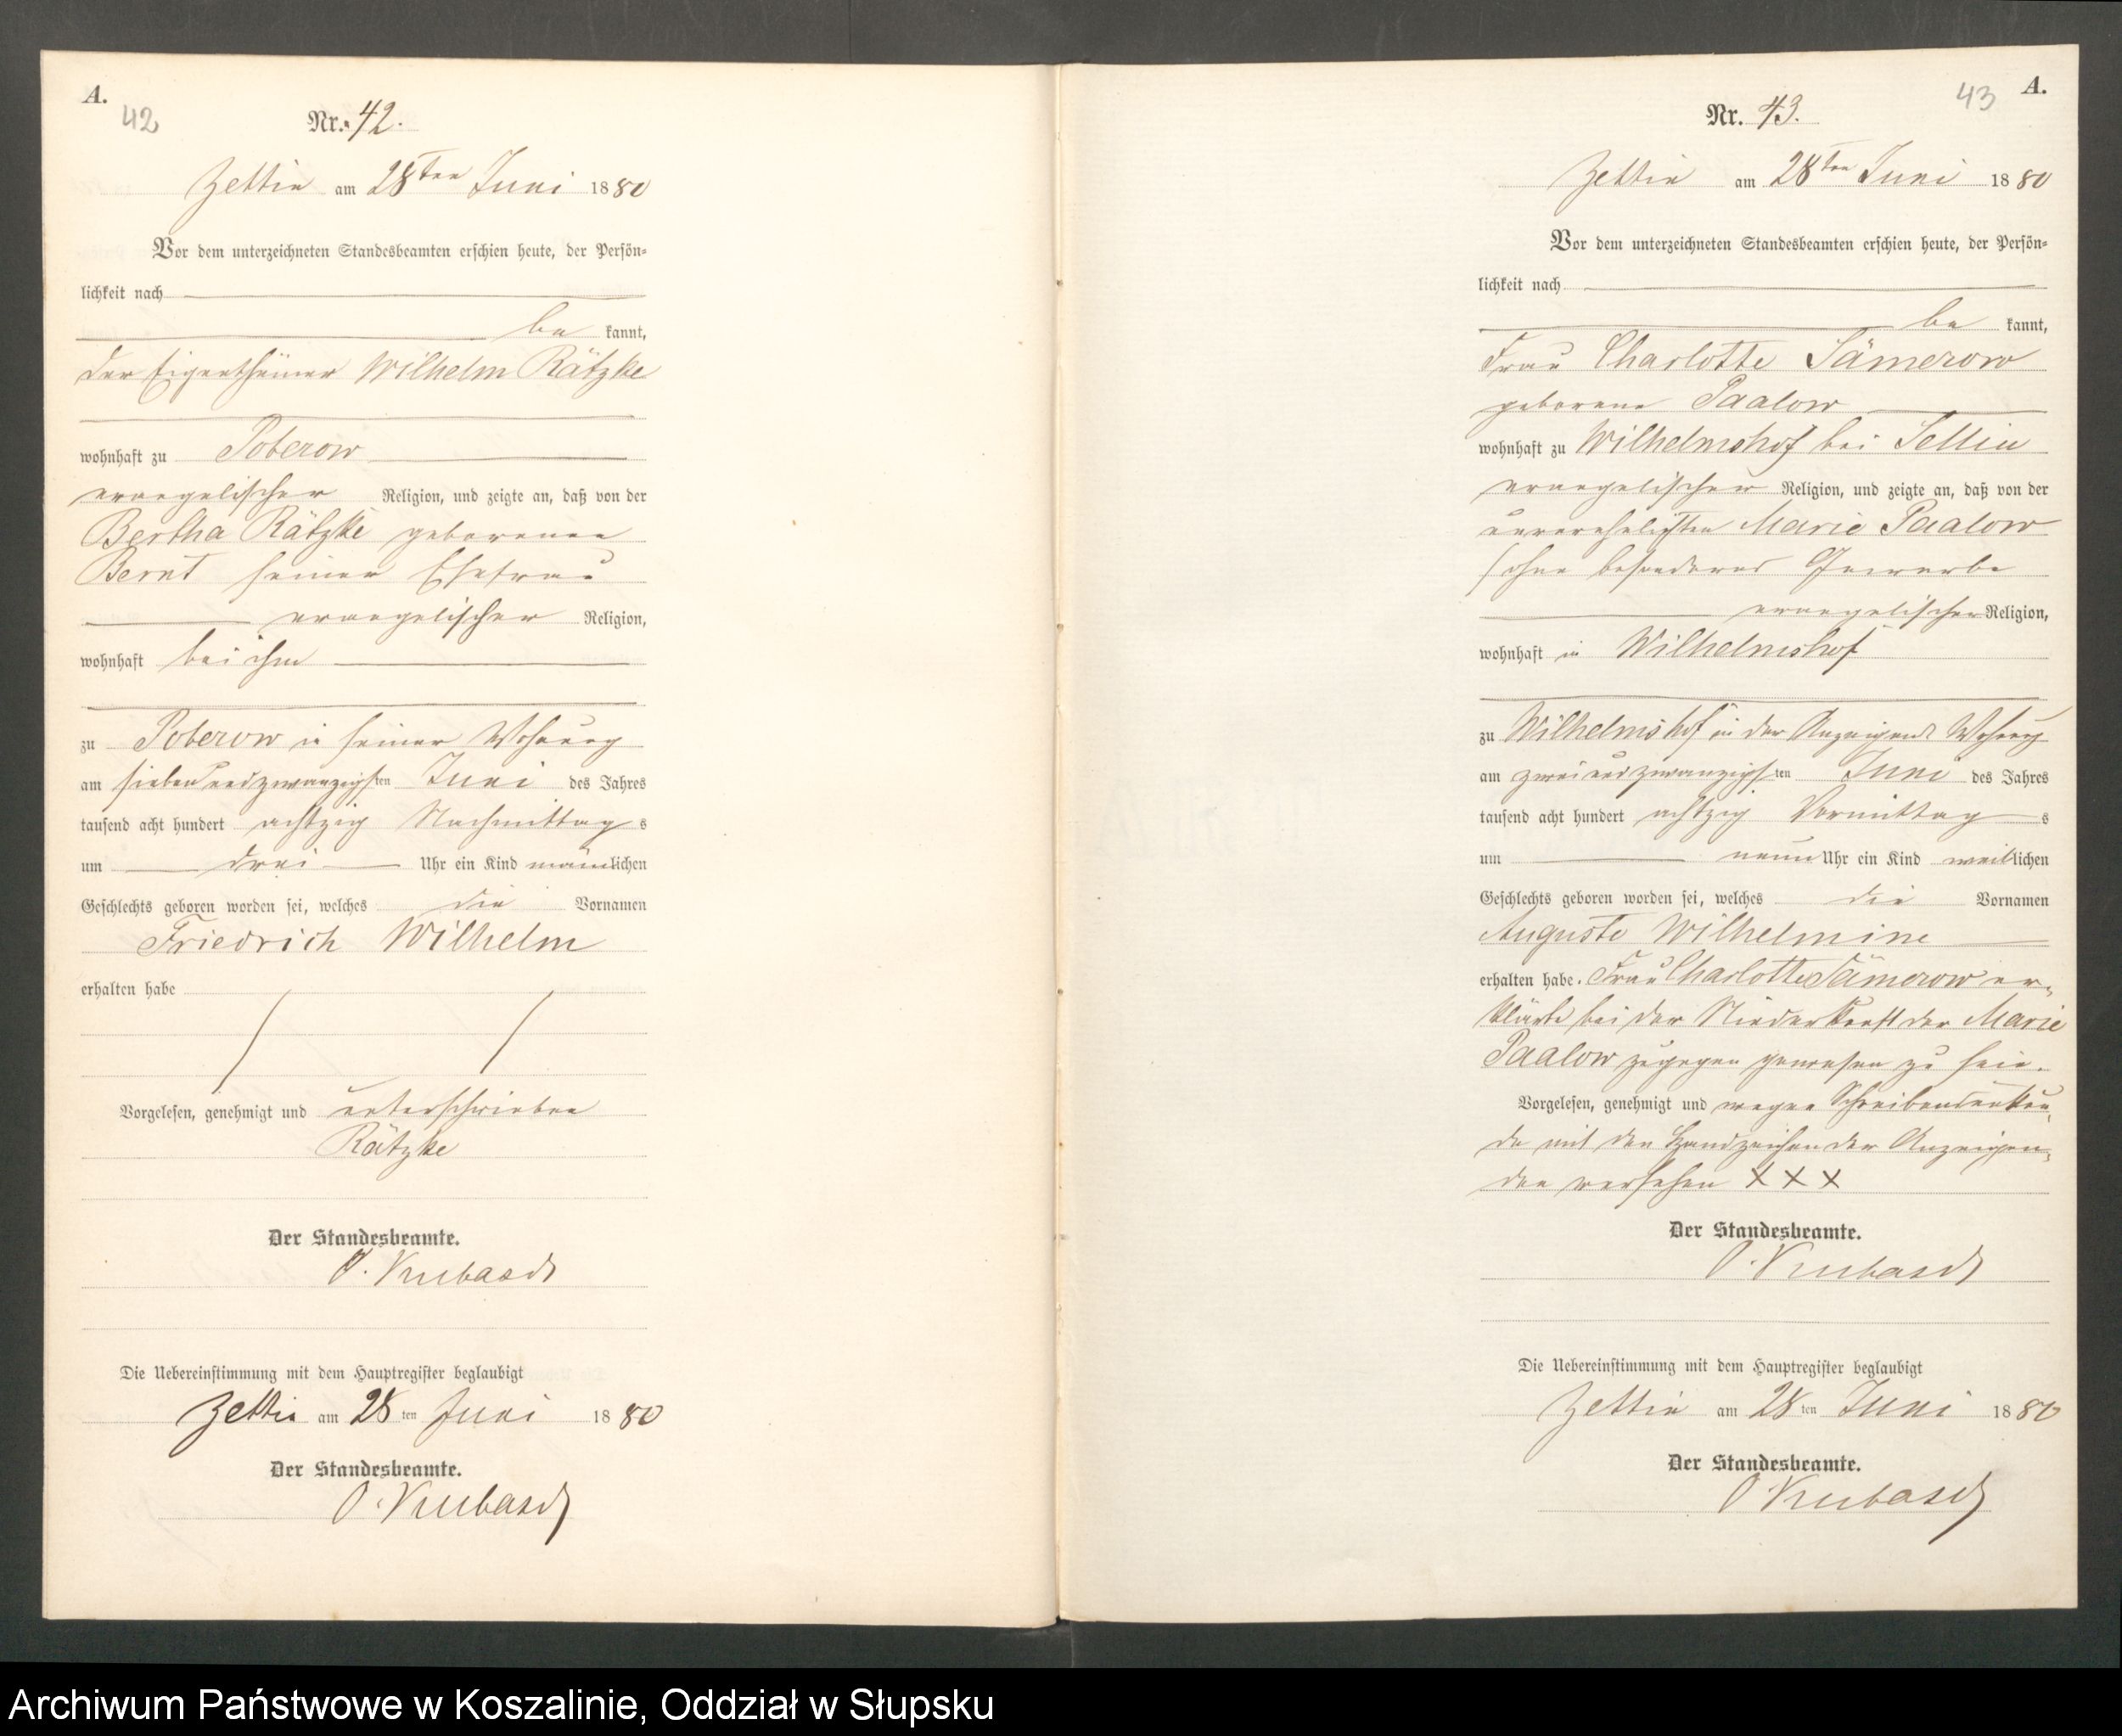 A.
42
Nr. 42.
Zettin am 28ten Juni 1880
Vor dem unterzeichneten Standesbeamten erschien heute, der Persön-
lichkeit nach
be kannt,
der Eigenthümer Wilhelm Rätzke
wohnhaft zu Poberow
evangelischer Religion, und zeigte an, daß von der
Bertha Rätzke geborenen
Bernt seiner Ehefrau
evangelischer Religion,
wohnhaft bei ihm
zu Poberow in seiner Wohnung
am sieben und zwanzigsten Juni des Jahres
tausend acht hundert achtzig Nachmittags
um drei Uhr ein Kind männlichen
Geschlechts geboren worden sei, welches die Vornamen
Friedrich Wilhelm
erhalten habe
Vorgelesen, genehmigt und unterschrieben
Rätzke
Der Standesbeamte.
O.
Die Uebereinstimmung mit dem Hauptregister beglaubigt
Zettin am 28ten Juni 1880
Der Standesbeamte.
O.
43
A.
Nr. 43.
Zettin am 28ten Juni 1880
Vor dem unterzeichneten Standesbeamten erschien heute, der Persön-
lichkeit nach
be kannt,
Frau Charlotte Sämerow
geborene Paalow
wohnhaft zu Wilhelmshof bei Sellin
evangelischer Religion, und zeigte an, daß von der
unverehelichten Marie Paalow
ohne besonderes Gewerbe
evangelischer Religion,
wohnhaft in Wilhelmshof
zu Wilhelmshof in der Anzeigende Wohnung
am zwei und zwanzigsten Juni des Jahres
tausend acht hundert achtzig Vormittags
um neun Uhr ein Kind weiblichen
Geschlechts geboren worden sei, welches die Vornamen
Auguste Wilhelmine
erhalten habe. Frau Charlotte Sämerow er-
klärte bei der Niederkunft der Marie
Paalow zugegen gewesen zu sein.
Vorgelesen, genehmigt und wegen Schreibensunkun-
de mit den Handzeichen der Anzeigen-
den versehen XXX
Der Standesbeamte.
O.
Die Uebereinstimmung mit dem Hauptregister beglaubigt
Zettin am 28ten Juni 1880
Der Standesbeamte.
O.
Archiwum Państwowe w Koszalinie, Oddział w Słupsku